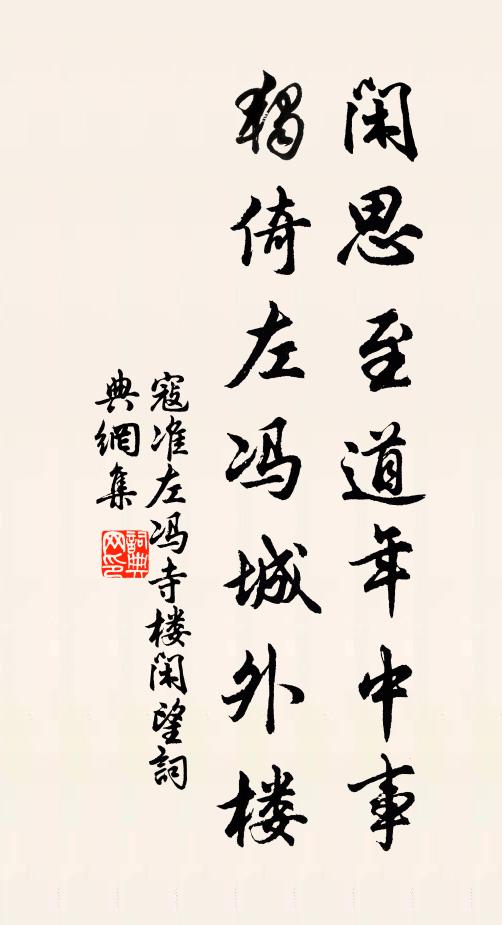 闲思至道年中事
独倚左冯城外楼
寇准左冯寺楼闲望詞
典網集
詞典网印